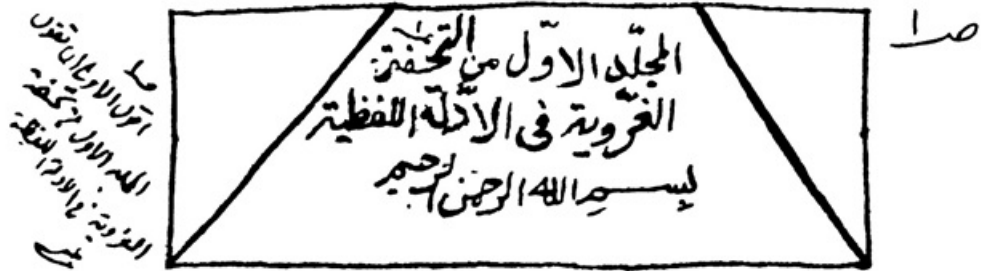 ص ١
المجلّد الاوّل من التحفة
الغَرَّوية فى الادَّلة اللفظية
بسم الله الرحمن الرحيم
اقول الاولى ان تقول
المجلد الاول من تحفة
الغروية فى الادلة اللفظية